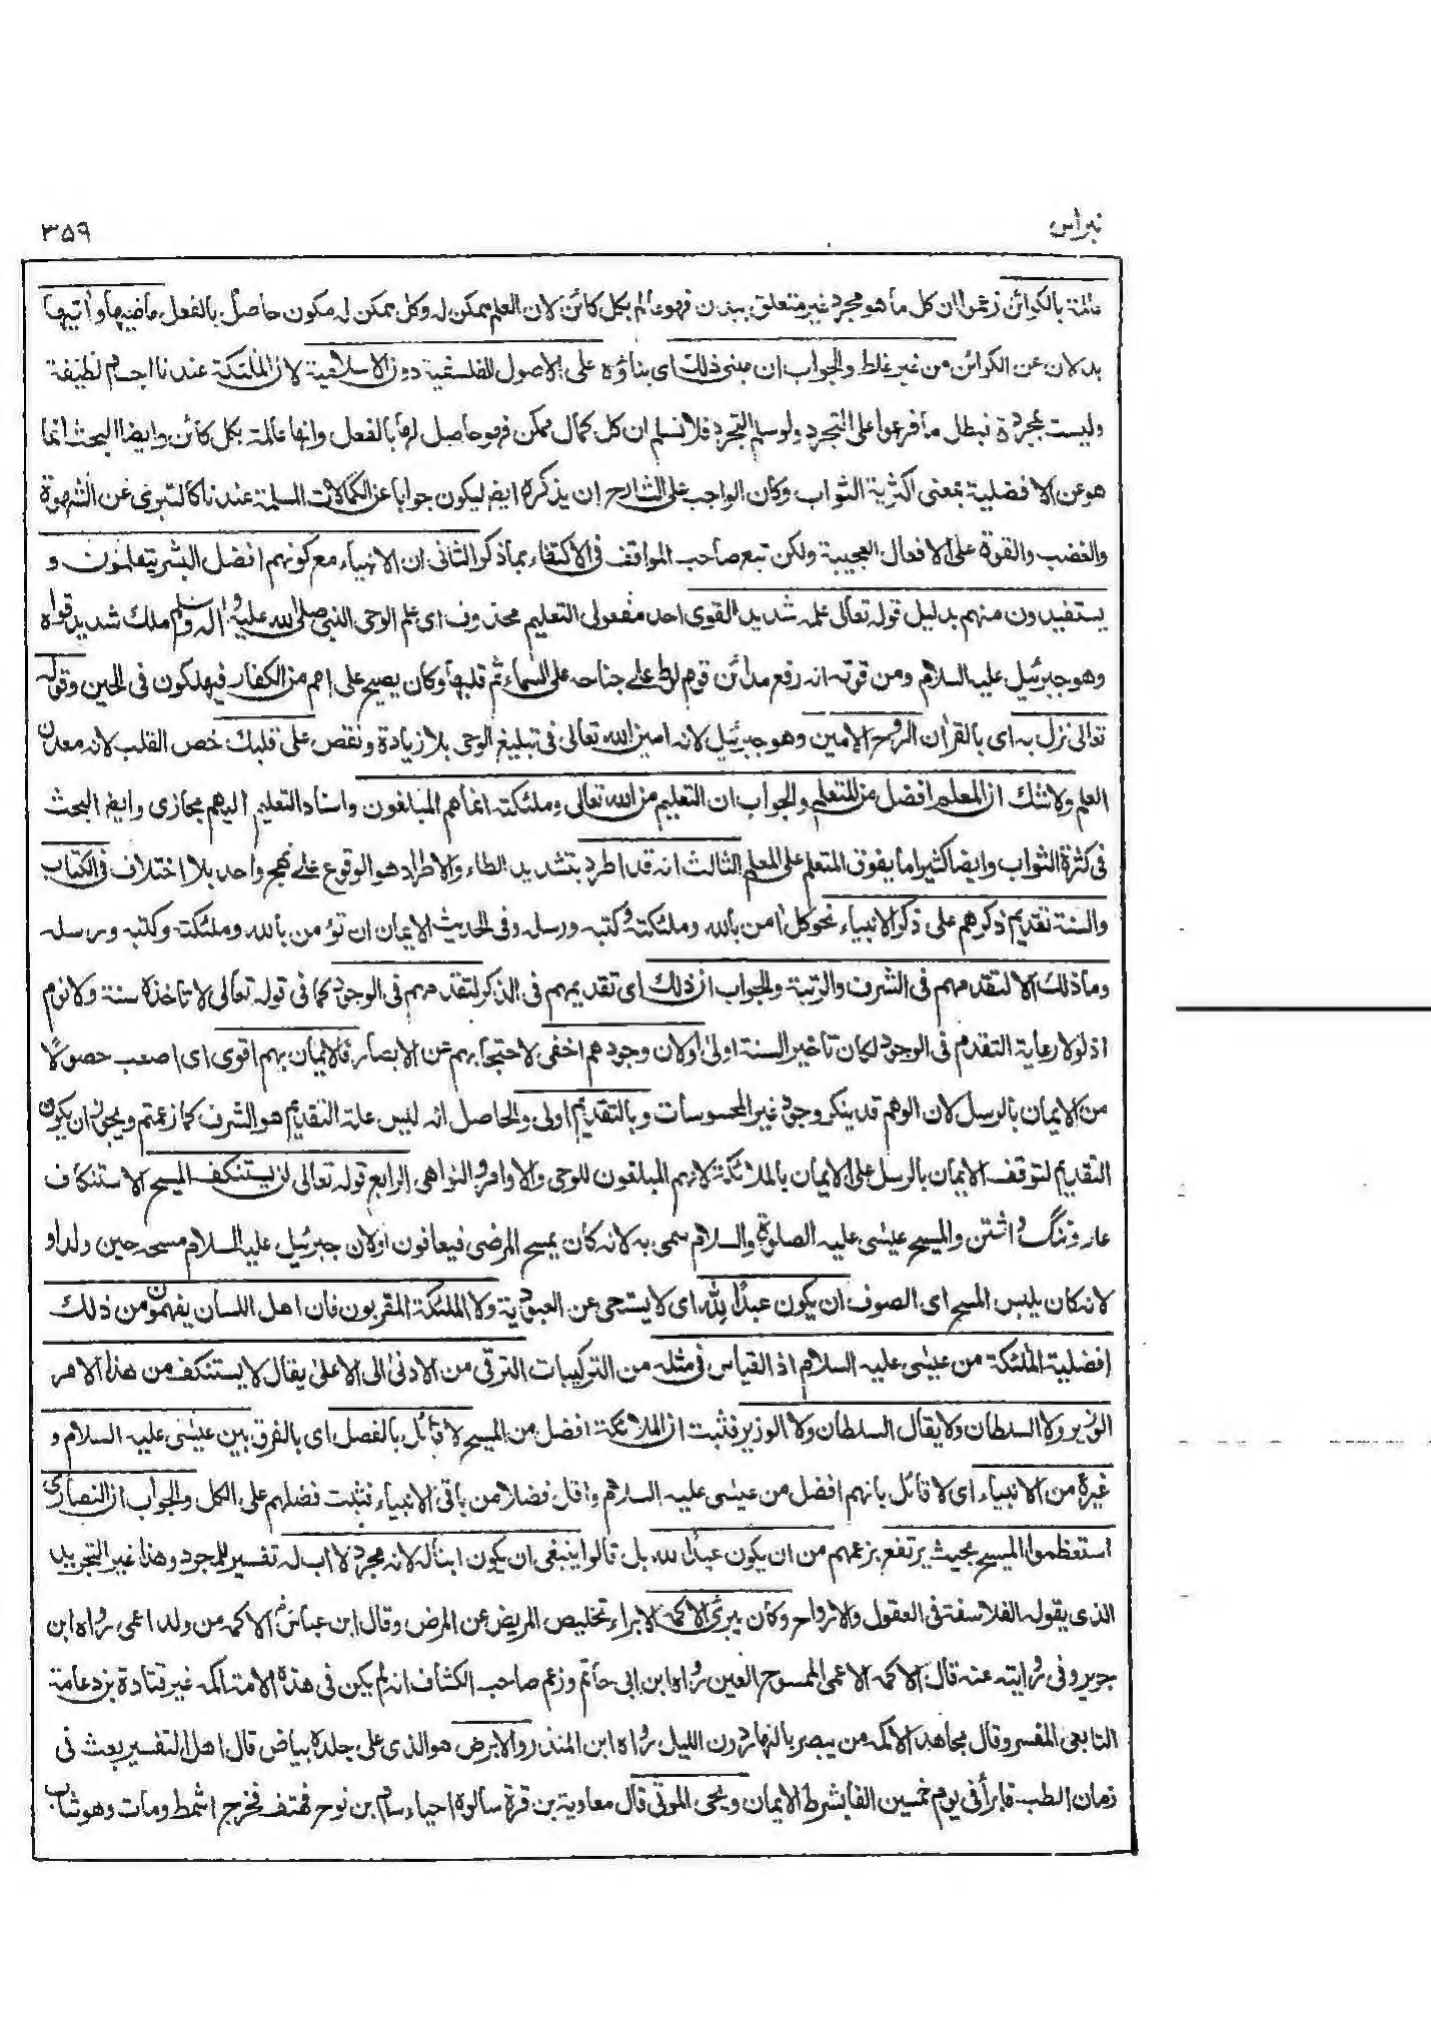 نبراس
٣٥٩
عالمة بالكوائن زعموا ان كل ما هو مجرد غير متعلق ببدن فهو عالم بكل كائن لان العلم ممكن له وكل ممكن له مكون حاصل بالفعل ماضيها وأتيها
بدلان عن الكوائن من غير غلط والجواب ان مبنى ذلك اى بناؤه على الاصول الفلسفية دون الاسلامية لان الملئكة عندنا اجسام لطيفة
وليست بمجردة فبطل ما فرعوا على التجرد ولو سلم التجرد فلا نسلم ان كل كمال ممكن فهو حاصل لها بالفعل وانها عالمة بكل كائن وايضا البحث انما
هو عن الافضلية بمعنى اكثرية الثواب وكان الواجب على الشارح ان يذكره ايض ليكون جوابا عن الكمالات المسلمة عندنا كالتبرى عن الشهوة
والغضب والقوة على الافعال العجيبة ولكن تبع صاحب المواقف فى الاكتفاء بما ذكر الثانى ان الانبياء مع كونهم افضل البشر يتعلمون و
يستفيدون منهم بدليل قوله تعالى علمه شديد القوى احد مفعولى التعليم محذوف اى علم الوحى النبى صلى الله عليه و اله وسلم ملك شديد قواه
وهو جبرئيل عليه السلام ومن قوته انه رفع مدائن قوم لوط على جناحه على السماء ثم قلبها وكان يصيح على امم من الكفار فيهلكون فى الحين وقوله
تعالى نزل به اى بالقرأن الروح الامين وهو جبرئيل لانه امين الله تعالى فى تبليغ الوحى بلا زيادة ونقص على قلبك خص القلب لانه معدن
العلم ولا شك ان المعلم افضل من المتعلم والجواب ان التعليم من الله تعالى وملئكته انما هم المبلغون واسناد التعليم اليهم مجازى وايض البحث
فى كثرة الثواب وايضا كثيرا ما يفوق المتعلم على المعلم الثالث انه قد اطرد بتشديد الطاء والاطراد هو الوقوع على نهج واحد بلا اختلاف فى الكتاب
والسنة تقديم ذكرهم على ذكر الانبياء نحو كل أمن بالله وملئكته وكتبه ورسله وفى الحديث الايمان ان تؤمن بالله وملئكته وكتبه ورسله
وما ذلك الا لتقدمهم فى الشرف والرتبة والجواب ان ذلك اى تقديمهم فى الذكر لتقدمهم فى الوجود كما فى قوله تعالى لا تاخذه سنة ولا نوم
اذ لولا رعاية التقدم فى الوجود لكان تاخير السنة اولى او لان وجودهم اخفى لاحتجابهم عن الابصار فالايمان بهم اقوى اى اصعب حصولا
من الايمان بالرسل لان الوهم قد ينكر وجود غير المحسوسات وبالتقديم اولى والحاصل انه ليس علة التقديم هو الشرف كما زعمتم ويجوز ان يكون
التقديم لتوقف الايمان بالرسل على الايمان بالملائكة لانهم المبلغون للوحى والاوامر والنواهى الرابع قوله تعالى لن يستنكف المسيح الاستنكاف
عار وننگ داشتن والمسيح عيسى عليه الصلوة والسلام سمى به لانه كان يمسح المرضى فيعافون او لان جبرئيل عليه السلام مسحه حين ولد او
لانه كان يلبس المسح اى الصوف ان يكون عبدا لله اى لا يستحى عن العبودية ولا الملئكة المقربون فان اهل اللسان يفهمون من ذلك
افضلية الملئكة من عيسى عليه السلام اذ القياس فى مثله من التركيبات الترقى من الادنى الى الاعلى يقال لا يستنكف من هذا الامر
الوزير ولا السلطان ولا يقال السلطان ولا الوزير فثبت ان الملائكة افضل من المسيح لا قائل بالفصل اى بالفرق بين عيسى عليه السلام و
غيره من الانبياء اى لا قائل بانهم افضل من عيسى عليه السلام واقل فضلا من باقى الانبياء فثبت فضلهم على الكل والجواب ان النصارى
استعظموا المسيح بحيث يرتفع بزعمهم من ان يكون عبدا لله بل قالوا ينبغى ان يكون ابنا له لانه مجرد لا اب له تفسير للمجرد وهذا غير التجريد
الذى يقوله الفلاسفة فى العقول والارواح وكان يبرئ الاكمه الابراء تخليص المريض عن المرض وقال ابن عباس الاكمه من ولد اعمى رواه ابن
جرير وفى رواية عنه قال الاكمه الاعمى الممسوح العين رواه ابن ابى حاتم وزعم صاحب الكشاف انه لم يكن فى هذه الامة اكمه غير قتادة بن دعامة
التابعى المفسر وقال مجاهد الاكمه من يبصر بالنهار دون الليل رواه ابن المنذر والابرص هو الذى على جلده بياض قال اهل التفسير بعث فى
زمان الطب فابرأ فى يوم خمسين الفا بشرط الايمان ويحى الموتى قال معاوية بن قرة سالوه احياء سام بن نوح فهتف فخرج اشمط ومات وهو شاب